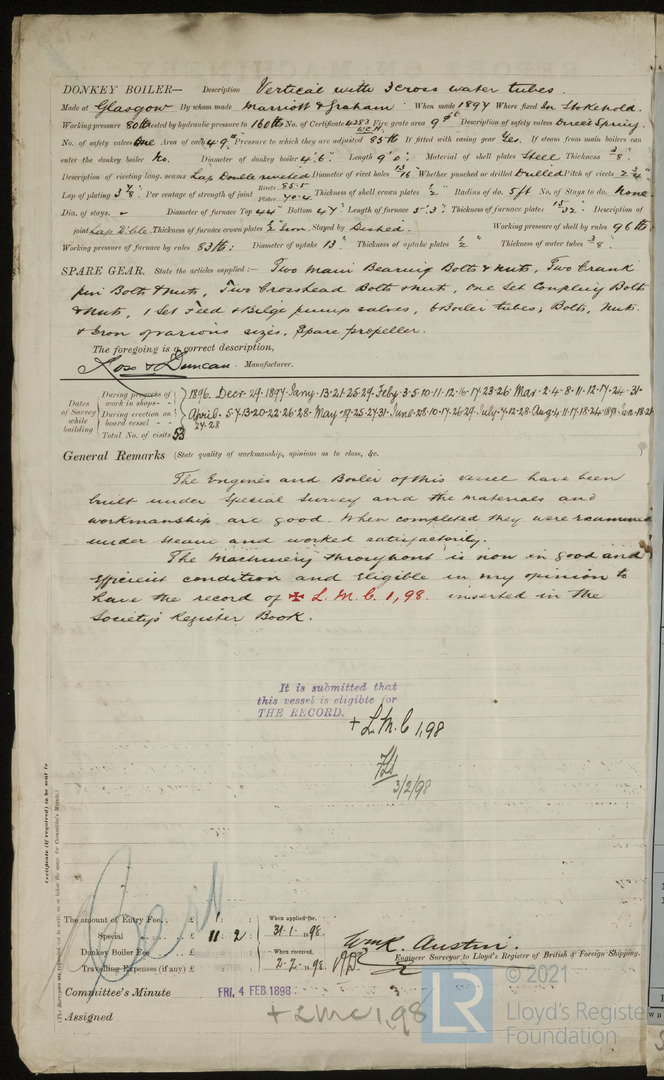 DONKEY BOILER— Description Vertical with 3 cross water tubes.
Made at Glasgow By whom made Marriott & Graham When made 1897 Where fixed In Stokehold.
Working pressure 80 lbs tested by hydraulic pressure to 160 lbs No. of Certificate 4383 Fire grate area 9 Description of safety valves Direct Spring.
No. of safety valves One Area of each 4.9" Pressure to which they are adjusted 85 lb If fitted with easing gear Yes. If steam from main boilers can
enter the donkey boiler No. Diameter of donkey boiler 4'.6" Length 9'.0" Material of shell plates Steel Thickness 3/8"
Description of riveting long. seams Lap Double riveted Diameter of rivet holes 13/16 Whether punched or drilled Drilled Pitch of rivets 2 3/4"
Lap of plating 3 7/8" Per centage of strength of joint Rivets 85.5 Plates 70.4 Thickness of shell crown plates 1/2" Radius of do. 5ft No. of Stays to do. None
Dia. of stays. – Diameter of furnace Top 44" Bottom 47" Length of furnace 5'.3" Thickness of furnace plates 15/32" Description of
joint Lap Dible. Thickness of furnace crown plates 1/2 Stayed by Dished. Working pressure of shell by rules 96 lb
Working pressure of furnace by rules 83 lb: Diameter of uptake 13" Thickness of uptake plates 1/2" Thickness of water tubes 3/8"
SPARE GEAR. State the articles supplied:— Two Main Bearing Bolts & nuts, Two Crank
pin Bolts & nuts, Two Crosshead Bolts & nuts, One Set Coupling Bolts
& nuts, 1 Set Feed & Bilge pump valves, 6 Boiler tubes, Bolts, Nuts.
& Iron of various sizes, Spare propeller.
The foregoing is a correct description,
Ross & Duncan Manufacturer.
Dates of Survey while building
During progress of work in shops - - 1896. Decr 29. 1897 Jany 13.21.25.29. Feby 3.5.10.11.12.16.17.23.26. Mar 2.4.8.11.12.17.24.31.
During erection on board vessel - - - April 5.7.13.20.22.26.28. May 19.25.27.31. June 28.10.17.26.29. July 7.12.28. Aug 4.11.17.18.24. 1898 Jan 18.21
24.28
Total No. of visits 53
General Remarks (State quality of workmanship, opinions as to class, &c.
The Engines and Boiler of this vessel have been
built under Special Survey and the materials and
workmanship are good. When completed they were examined
under steam and worked satisfactorily.
The Machinery throughout is now in good and
efficient condition and eligible in my opinion to
have the record of ✠ L.M.C. 1,98. inserted in the
Society's Register Book.
It is submitted that
this vessel is eligible for
THE RECORD.
+ L.M.C 1,98
3/2/98
Certificate (if required) to be sent to
The amount of Entry Fee.. £ 1 : : When applied for,
Special .. .. £ 11 : 2 : 31.1.1898.
Donkey Boiler Fee .. £ : : When received,
Travelling Expenses (if any) £ : : 2.2.1898.
Wm R. Austin.
Engineer Surveyor to Lloyd's Register of British & Foreign Shipping.
Committee's Minute FRI. 4 FEB 1898
Assigned + LMC 1,98
© 2021
LR
Lloyd's Register
Foundation